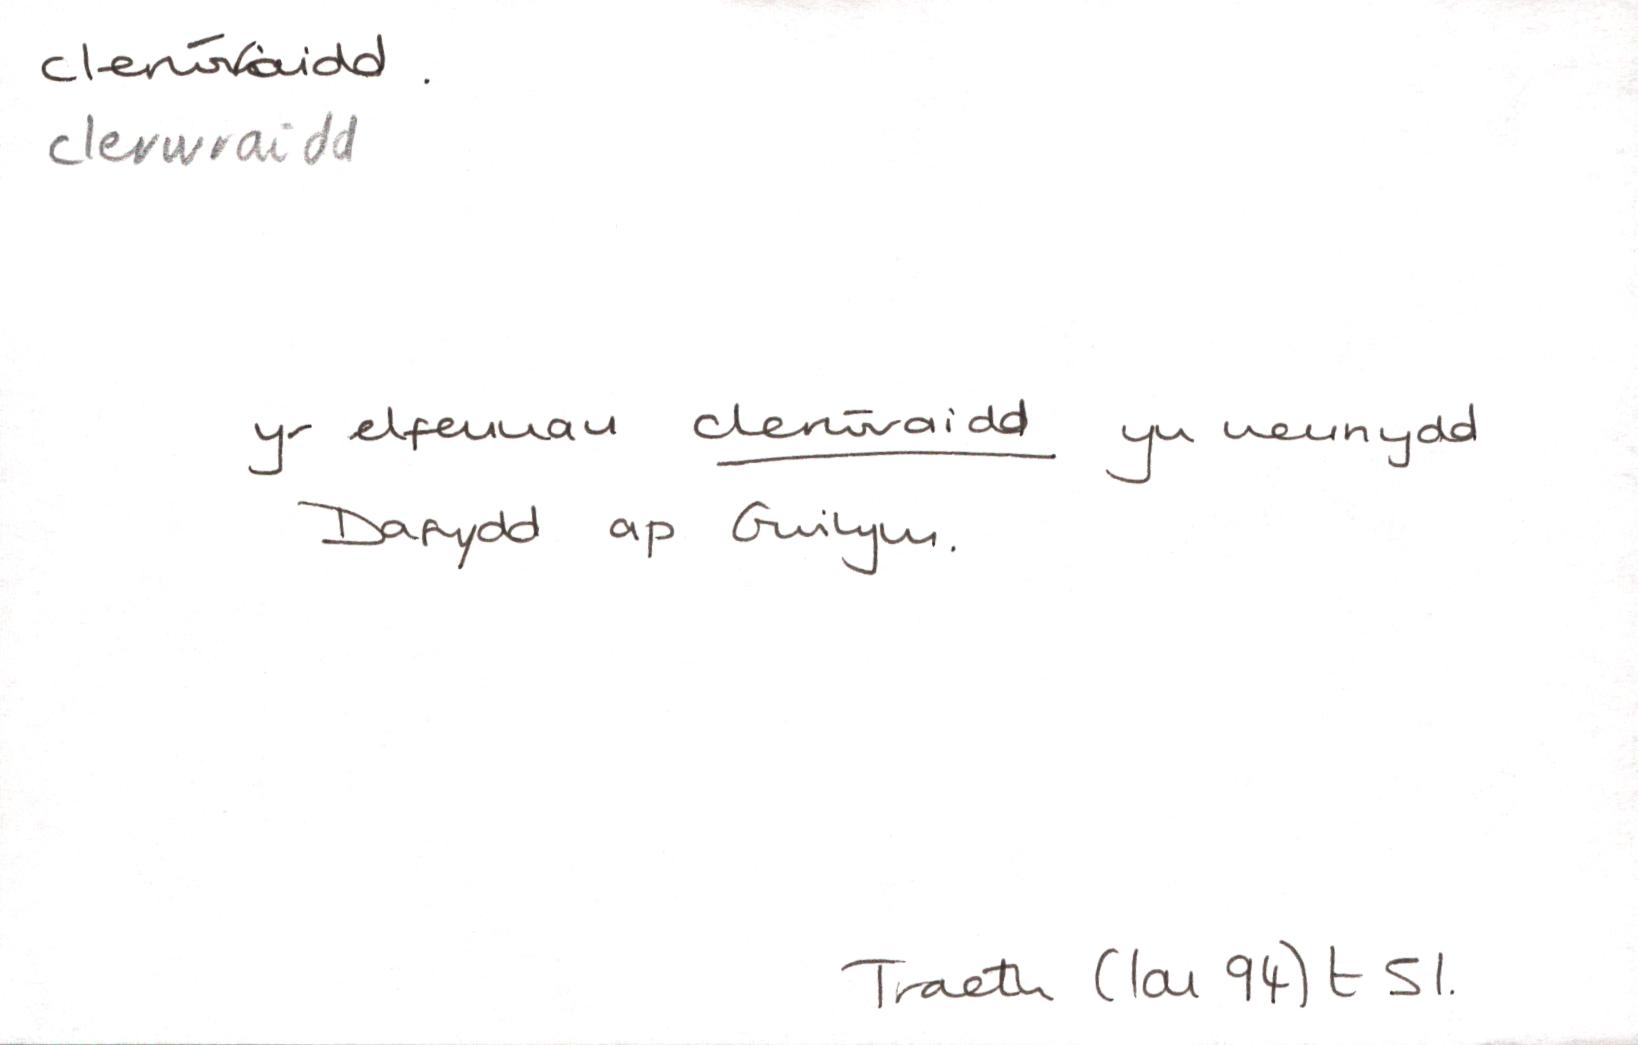 clerwraidd.
clerwraidd
yr elfennau clerwraidd yn neunydd
Dafydd ap Gwilym.
Traeth (Ion 94) t 51.